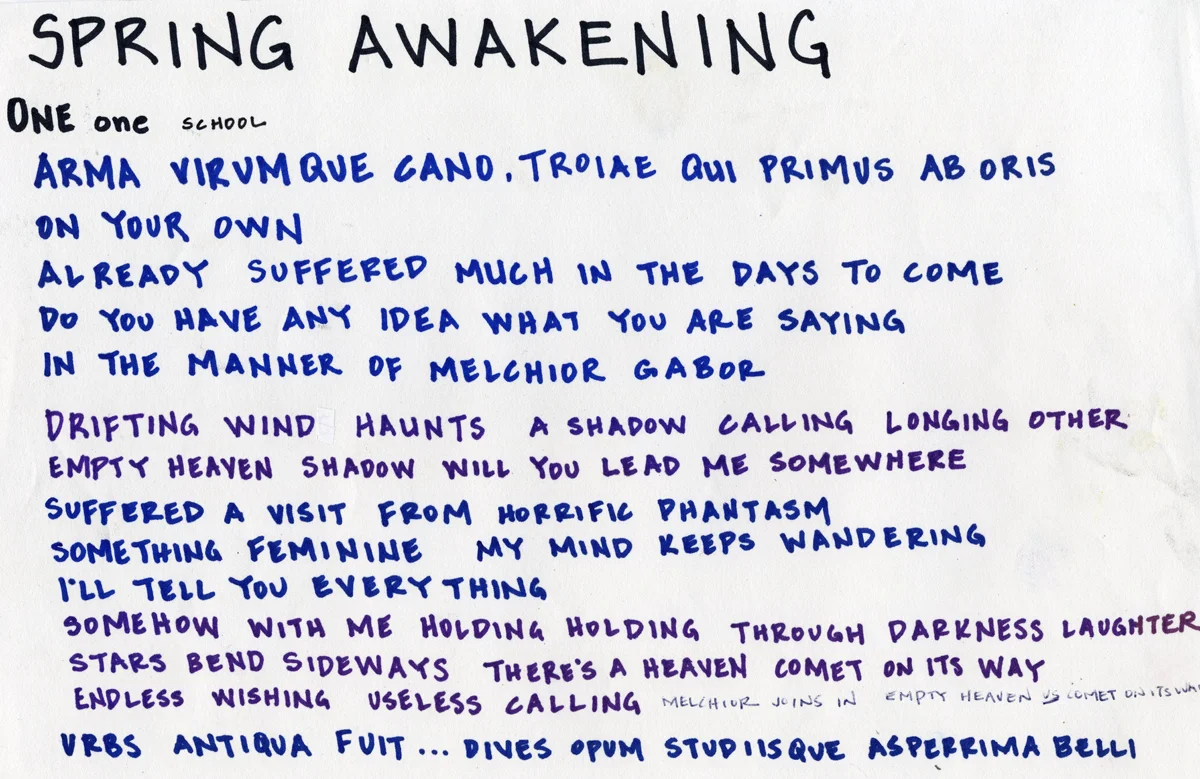 SPRING AWAKENING
ONE one SCHOOL
ARMA VIRUMQUE CANO, TROIAE QUI PRIMUS AB ORIS
ON YOUR OWN
ALREADY SUFFERED MUCH IN THE DAYS TO COME
DO YOU HAVE ANY IDEA WHAT YOU ARE SAYING
IN THE MANNER OF MELCHIOR GABOR
DRIFTING WIND HAUNTS A SHADOW CALLING LONGING OTHER
EMPTY HEAVEN SHADOW WILL YOU LEAD ME SOMEWHERE
SUFFERED A VISIT FROM HORRIFIC PHANTASM
SOMETHING FEMININE MY MIND KEEPS WANDERING
I'LL TELL YOU EVERYTHING
SOMEHOW WITH ME HOLDING HOLDING THROUGH DARKNESS LAUGHTER
STARS BEND SIDEWAYS THERE'S A HEAVEN COMET ON ITS WAY
ENDLESS WISHING USELESS CALLING MELCHIOR JOINS IN EMPTY HEAVEN VS COMET ON ITS WA
URBS ANTIQUA FUIT... DIVES OPUM STUDIISQUE ASPERRIMA BELLI